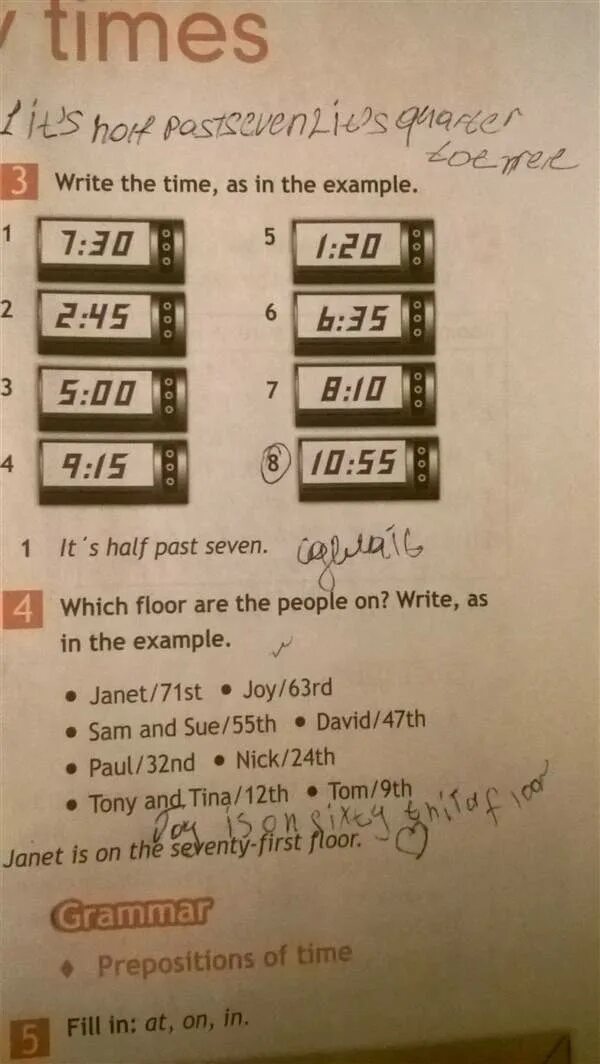 y times
1 it's half past seven 2 it's quarter
to
3 Write the time, as in the example.
1 7:30 5 1:20
2 2:45 6 6:35
3 5:00 7 8:10
4 9:15 8 10:55
1 It´s half past seven.
4 Which floor are the people on? Write, as
in the example.
• Janet/71st • Joy/63rd
• Sam and Sue/55th • David/47th
• Paul/32nd • Nick/24th
• Tony and Tina/12th • Tom/9th
Joy is on sixty third floor
Janet is on the seventy-first floor.
Grammar
♦ Prepositions of time
5 Fill in: at, on, in.